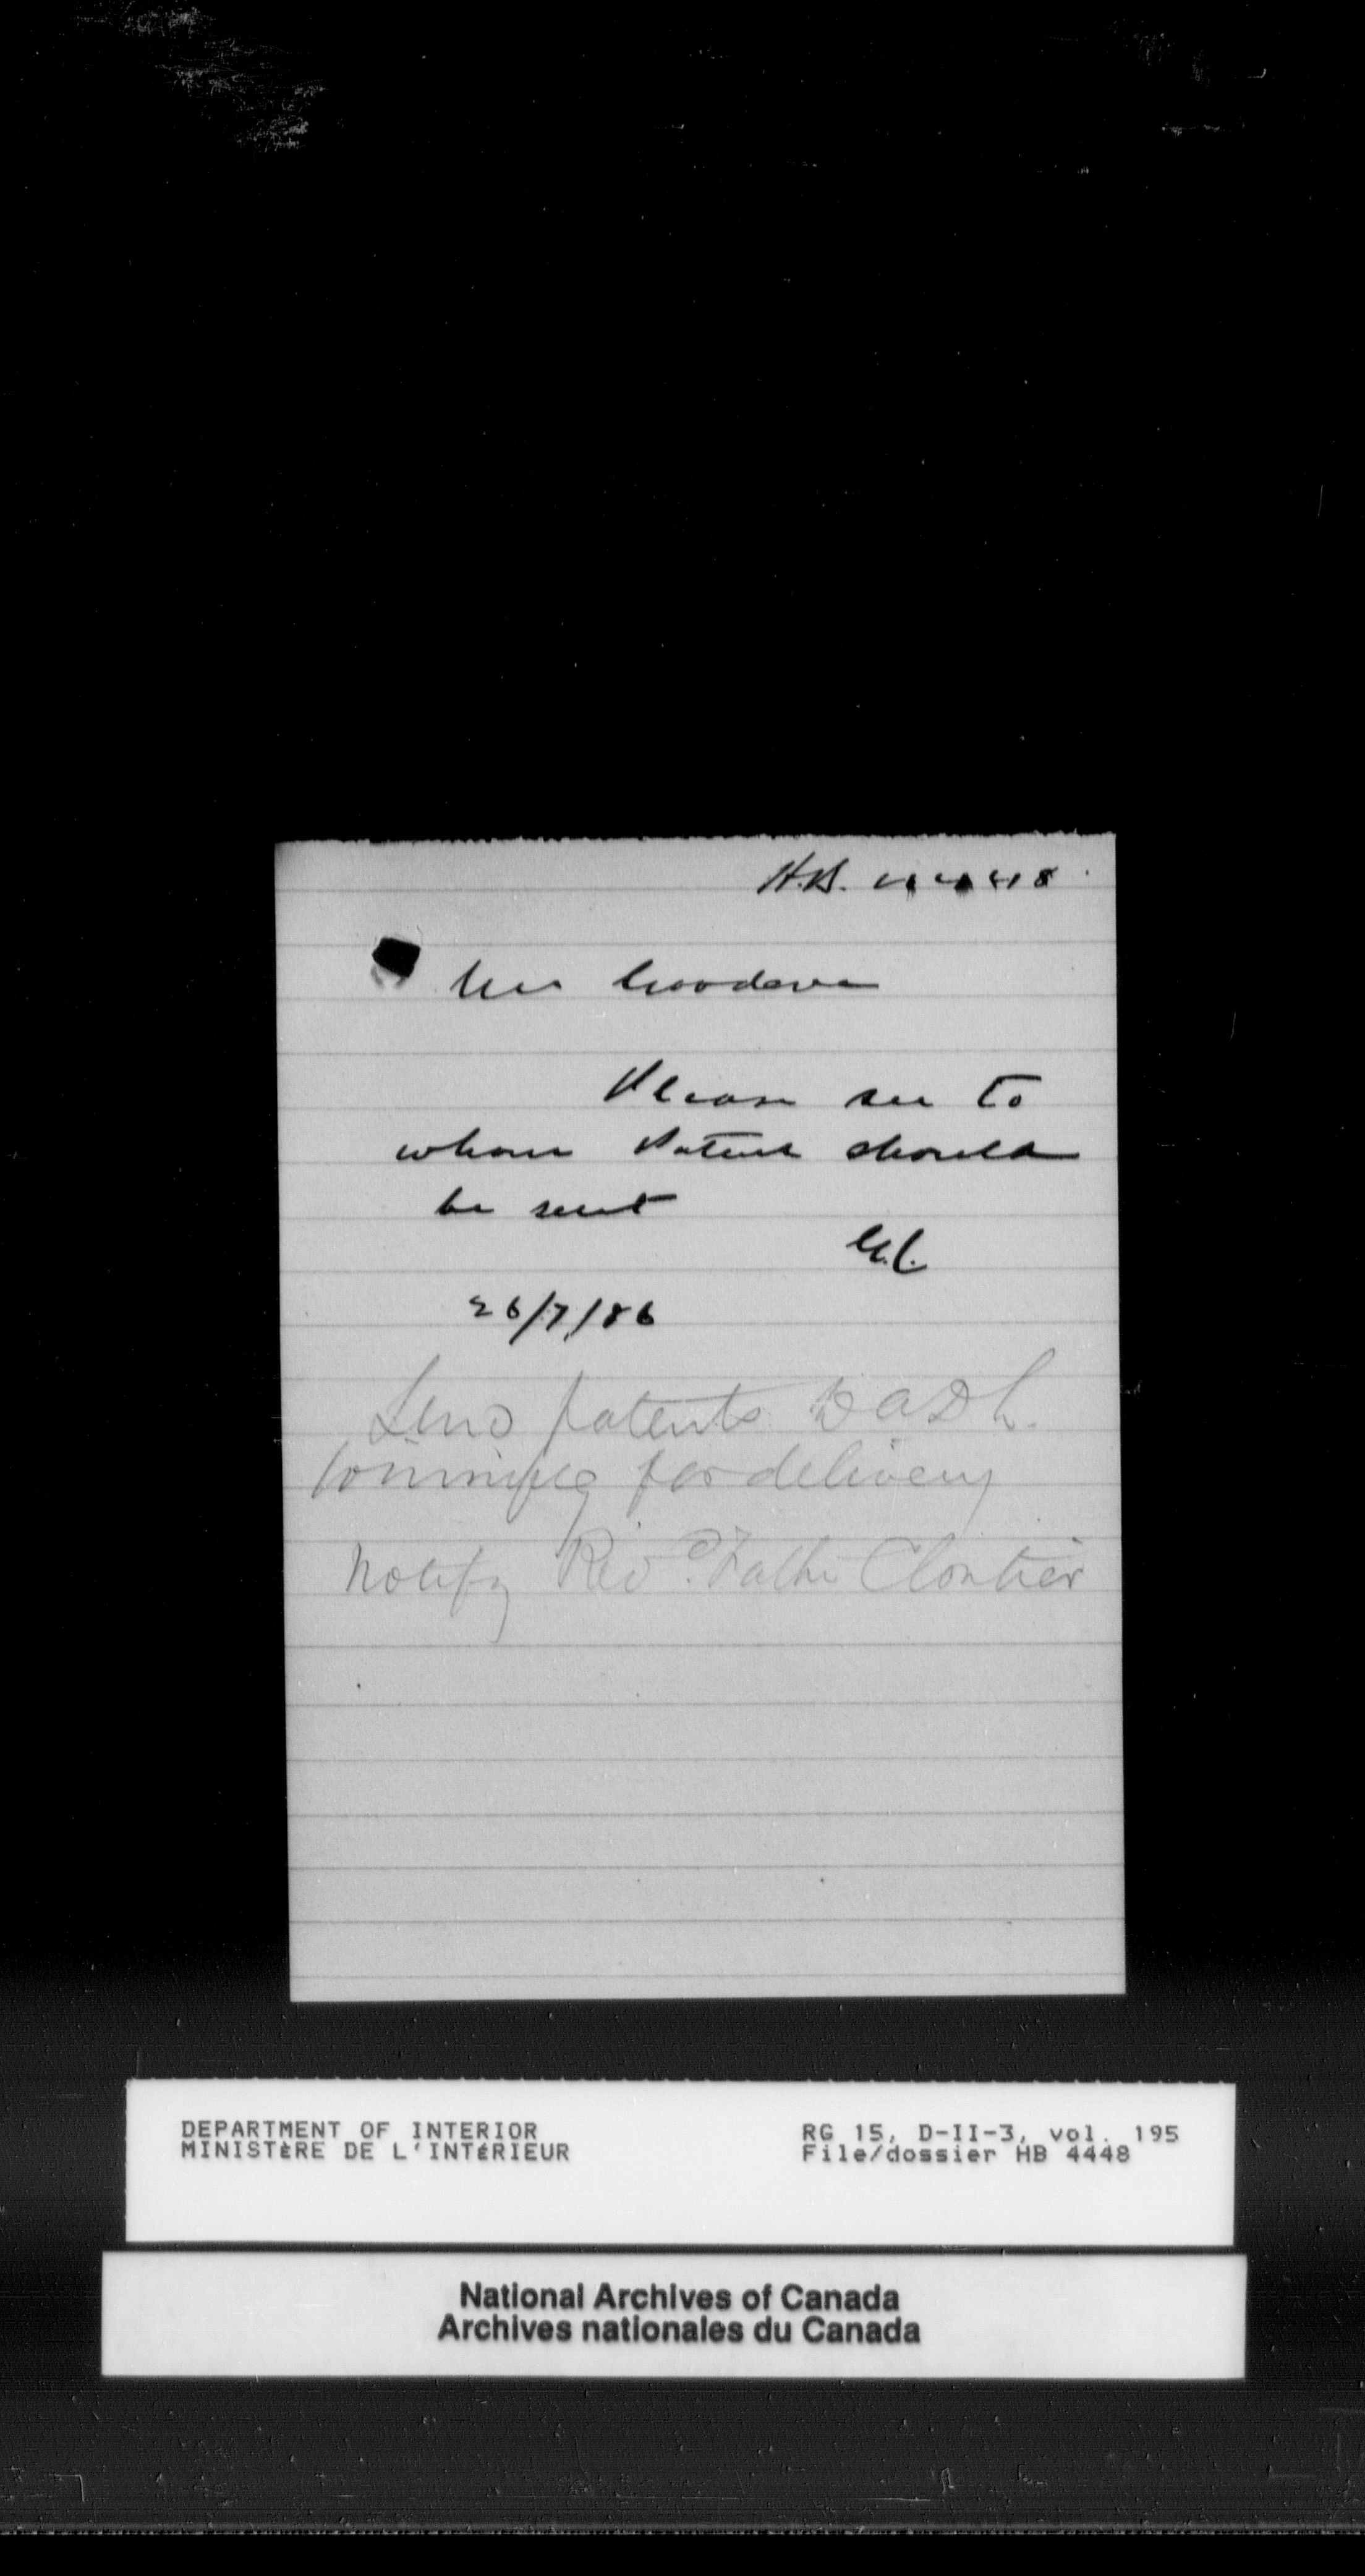 H.B. 4448
Mr Goodeve
Please see to
whom Patent should
be sent
26/7/86
Send patents to A D L.
Winnipeg for delivery
Notify Revd. Father Cloutier
DEPARTMENT OF INTERIOR
MINISTÈRE DE L'INTÉRIEUR
RG 15, D-II-3, vol. 195
File/dossier HB 4448
National Archives of Canada
Archives nationales du Canada